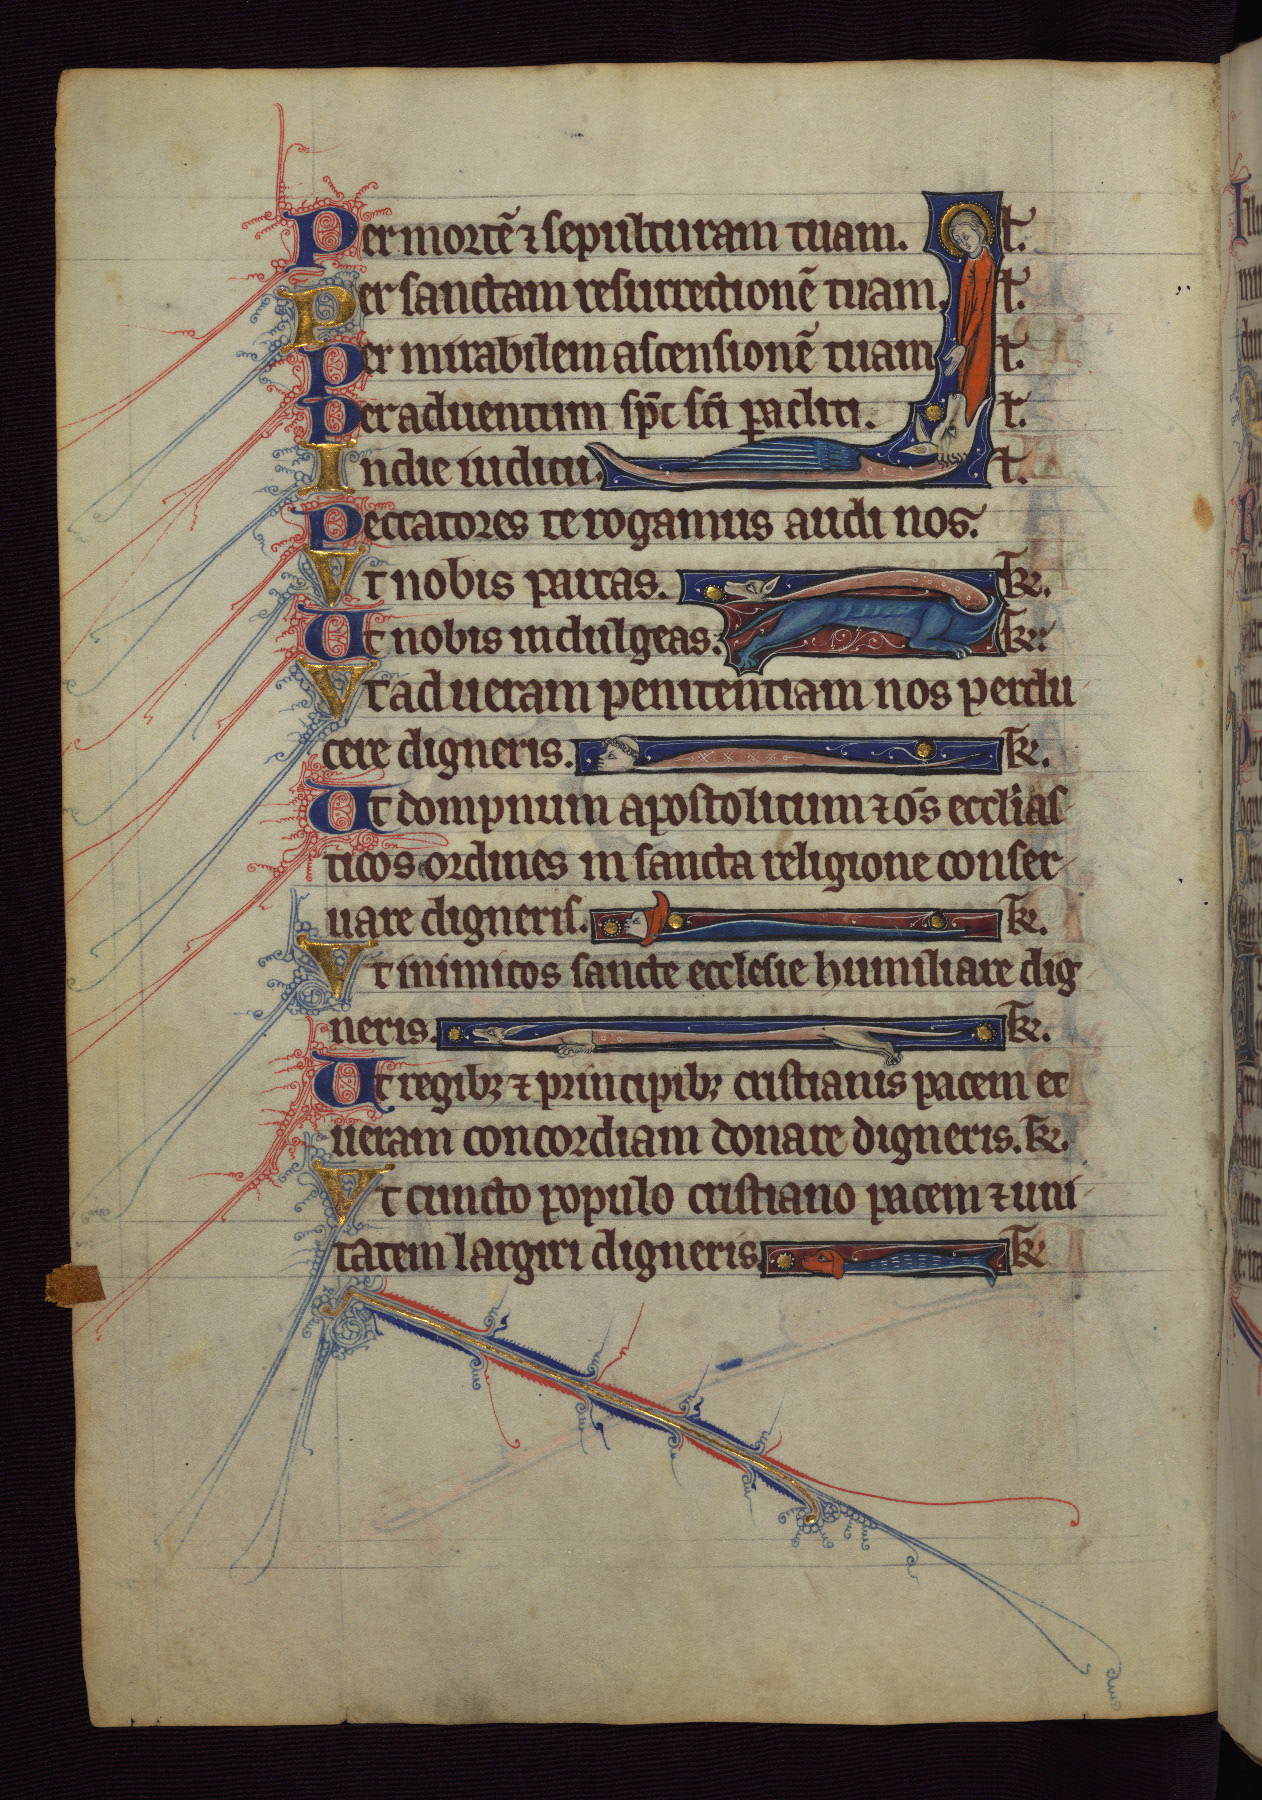 Per mortē ⁊ sepulturam tuam. ł.
Per sanctam resurrectionē tuam. ł.
Per mirabilem ascensionē tuam ł.
Per aduentum sp̄c sc̄i ꝑacliti. ł.
In die iudicii. ł.
Peccatores te rogamus audi nos.
Vt nobis parcas. ꝶ.
Ut nobis indulgeas. ꝶ.
Vt ad ueram penitentiam nos perdu
cere digneris. ꝶ.
Ut dompnum apostolicum ⁊ om̄s eccl'ias
ticos ordines in sancta religione conser
uare digneris. ꝶ.
Vt inimicos sancte ecclesie humiliare dig
neris. ꝶ.
Ut regibꝫ ⁊ principibꝫ cristianis pacem et
ueram concordiam donare digneris. ꝶ.
Vt cuncto populo cristiano pacem ⁊ uni
tatem largiri digneris ꝶ